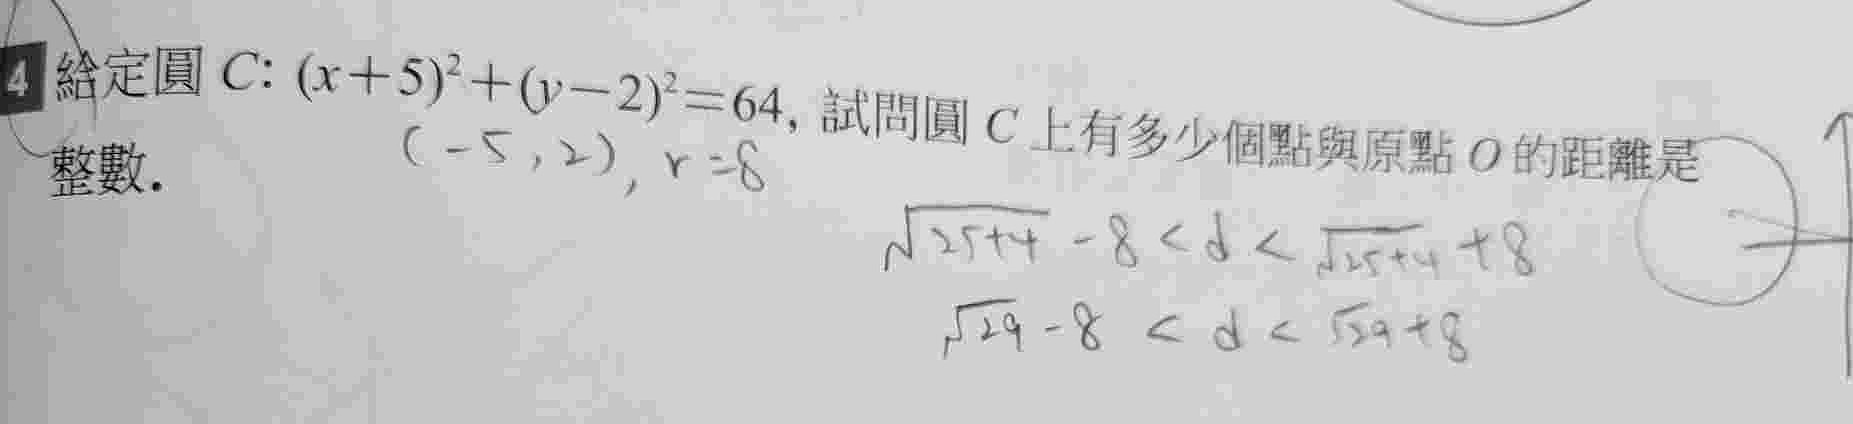 4 給定圓 C: (x+5)²+(y−2)²=64, 試問圓 C 上有多少個點與原點 O 的距離是
整數.
(-5,2), r=8
√25+4 - 8 < d < √25+4 + 8
√29 - 8 < d < √29 + 8